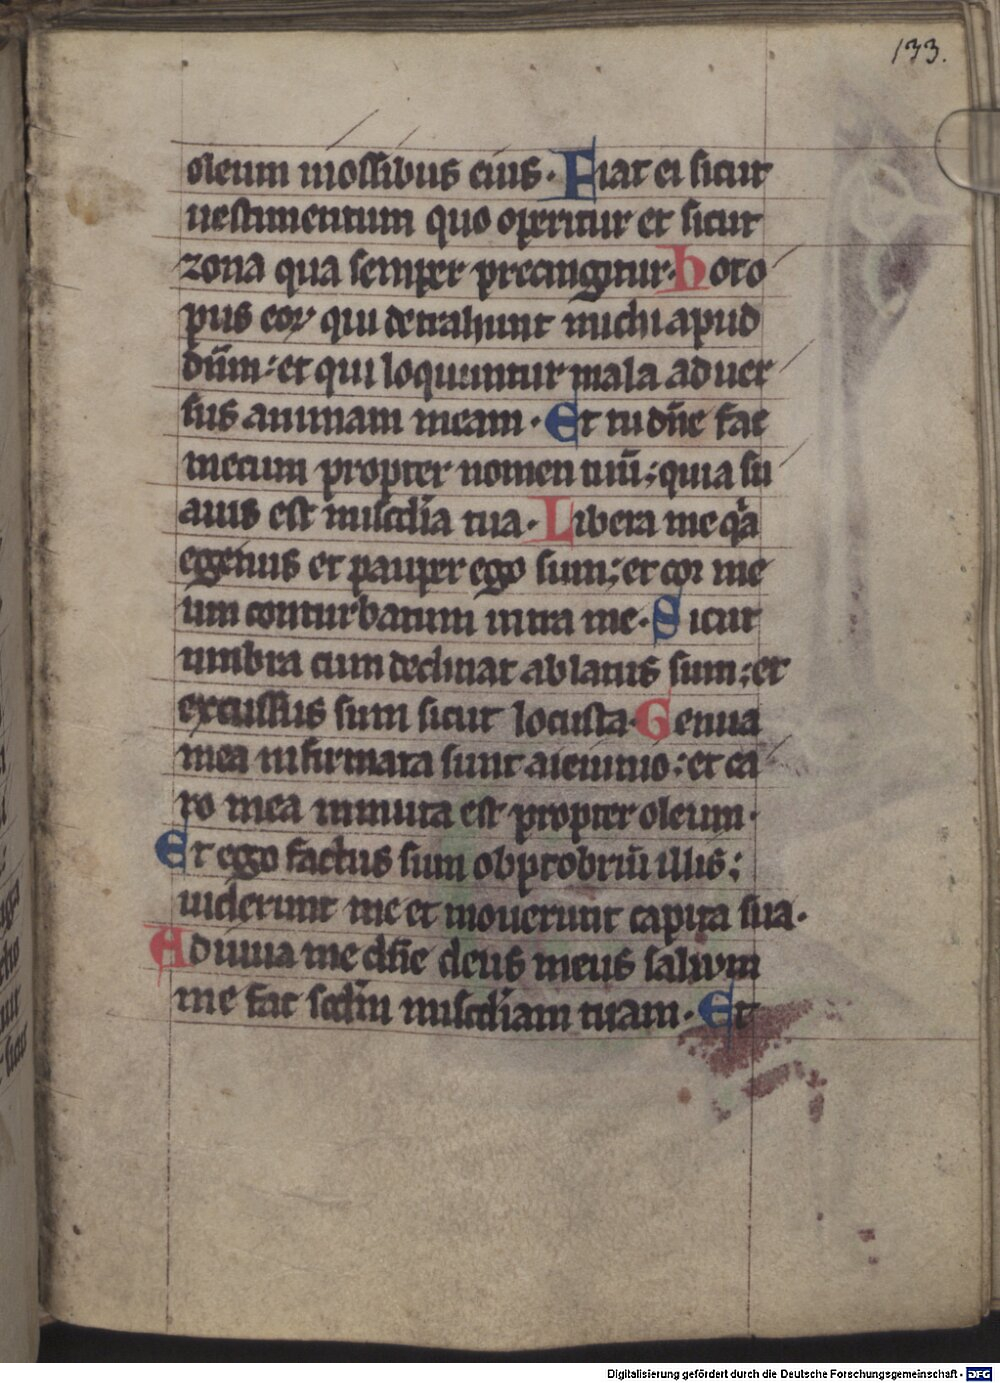 133.
oleum inossibus eius. Fiat ei sicut
uestimentum quo operitur et sicut
zona qua semper precingitur. hoc o
pus eoꝝ qui detrahunt michi apud
dūm: et qui loquuntur mala aduer
sus animam meam. Et tu dn̄e fac
mecum propter nomen tuū; quia su
auis est misc̄dia tua. Libera me qͥa
egenus et pauper ego sum; et cor me
um conturbatum intra me. Sicut
umbra cum declinat ablatus sum; et
excussus sum sicut locusta. Genua
mea infirmata sunt aieiunio: et ca
ro mea inmuta est propter oleum.
Et ego factus sum obprobriū illis;
uiderunt me et mouerunt capita sua.
Adiuua me dn̄e deus meus saluum
me fac scd̄m misc̄diam tuam. Et
Digitalisierung gefördert durch die Deutsche Forschungsgemeinschaft - DFG